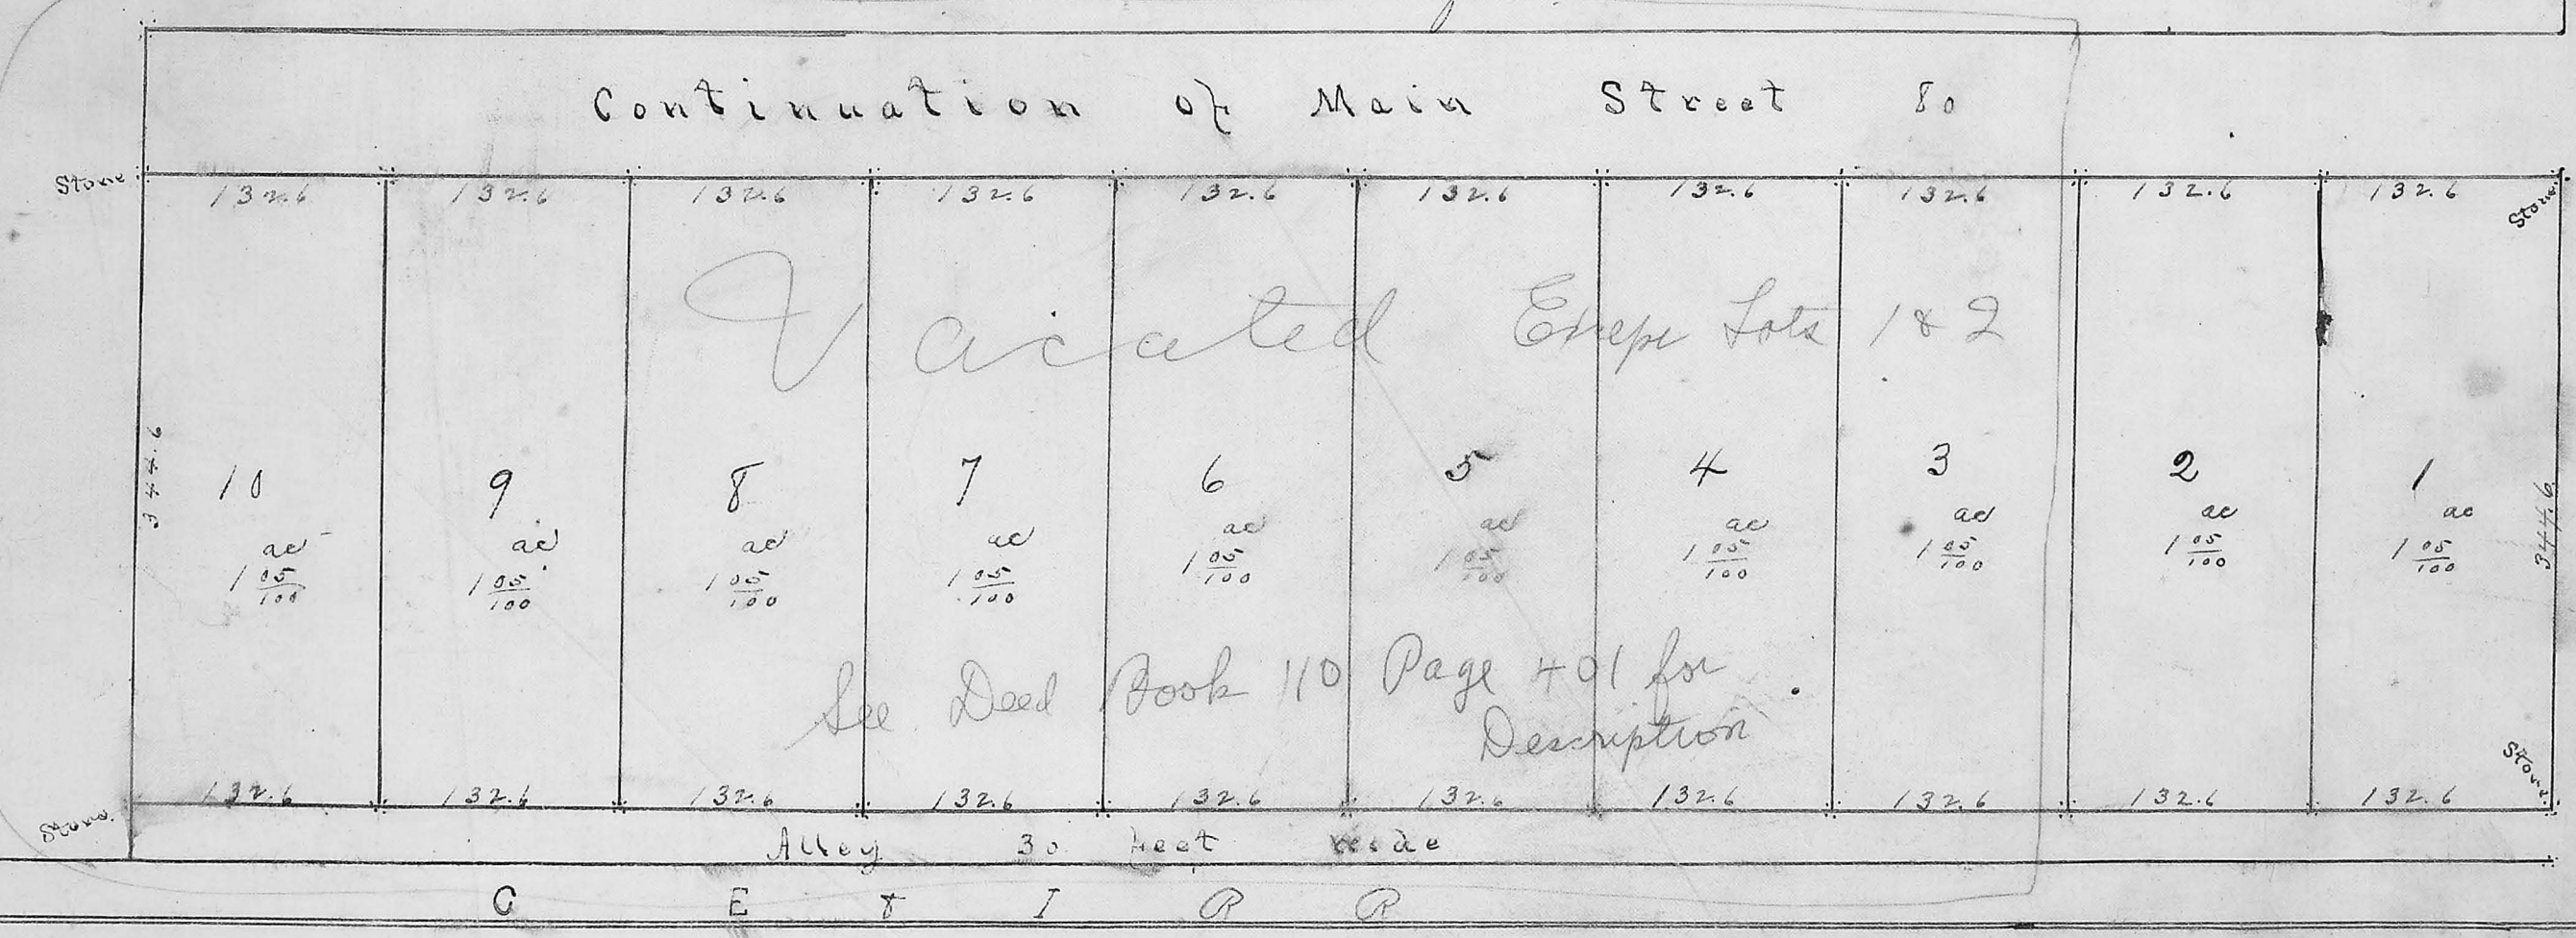 Continuation of Main Street 80
Stone 132.6 132.6 132.6 132.6 132.6 132.6 132.6 132.6 132.6 132.6 Stone
Vacated Except Lots 1 & 2
344.6 10 9 8 7 6 5 4 3 2 1 344.6
ac ac ac ac ac ac ac ac ac ac
1 05/100 1 05/100 1 05/100 1 05/100 1 05/100 1 05/100 1 05/100 1 05/100 1 05/100 1 05/100
See Deed Book 110 Page 401 for
Description
Stone 132.6 132.6 132.6 132.6 132.6 132.6 132.6 132.6 132.6 132.6 Stone
Alley 30 feet wide
C E & I R R